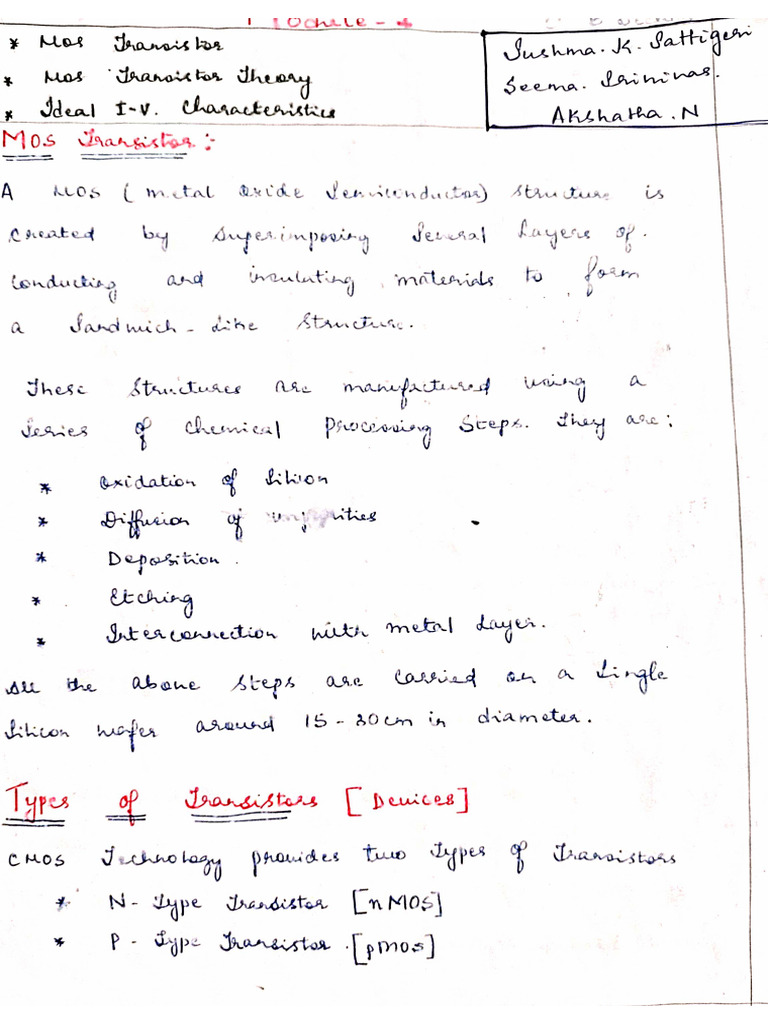 * Mos Transistor
* Mos Transistor Theory
* Ideal I-V. Characteristics
Sushma. K. Sattigeri
Seema. Srinivas.
Akshatha. N
MOS Transistor:-
A MOS (metal oxide Semiconductor) structure is
created by superimposing several layers of.
conducting and insulating materials to form
a Sandwich-like structure.
These structures are manufactured using a
series of chemical processing steps. They are:
* Oxidation of Silicon
* Diffusion of impurities
* Deposition.
* Etching
* Interconnection with metal Layer.
All the above steps are carried on a single
silicon wafer around 15-30cm in diameter.
Types of Transistors [Devices]
CMOS Technology provides two types of Transistors
* N-Type Transistor [nMOS]
* P-Type Transistor.[pMOS]